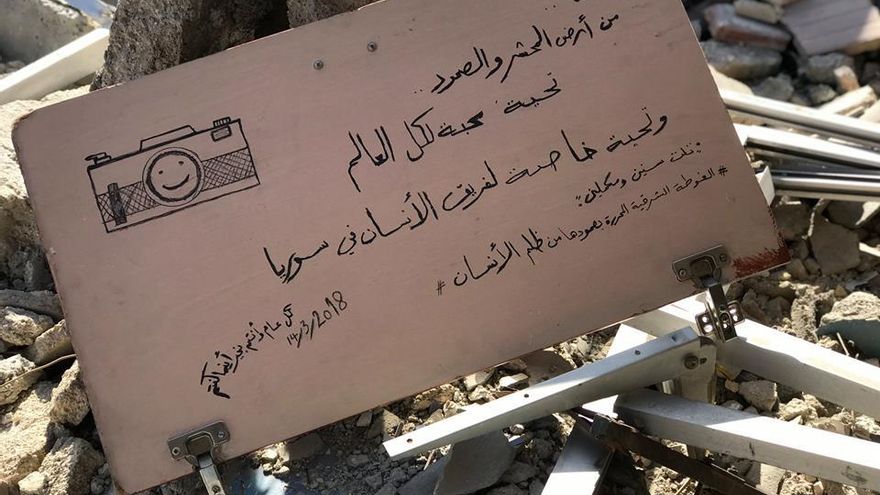 من أرض المحشر والصمود..
تحية محبة لكل العالم
وتحية خاصة لفريق الأنسان في سوريا
: تلت سنين ومكملين :
# الغوطة الشرقية المحررة بصمودها من ظلم الأنسان #
كل عام وأنتم بخير
14/3/2018